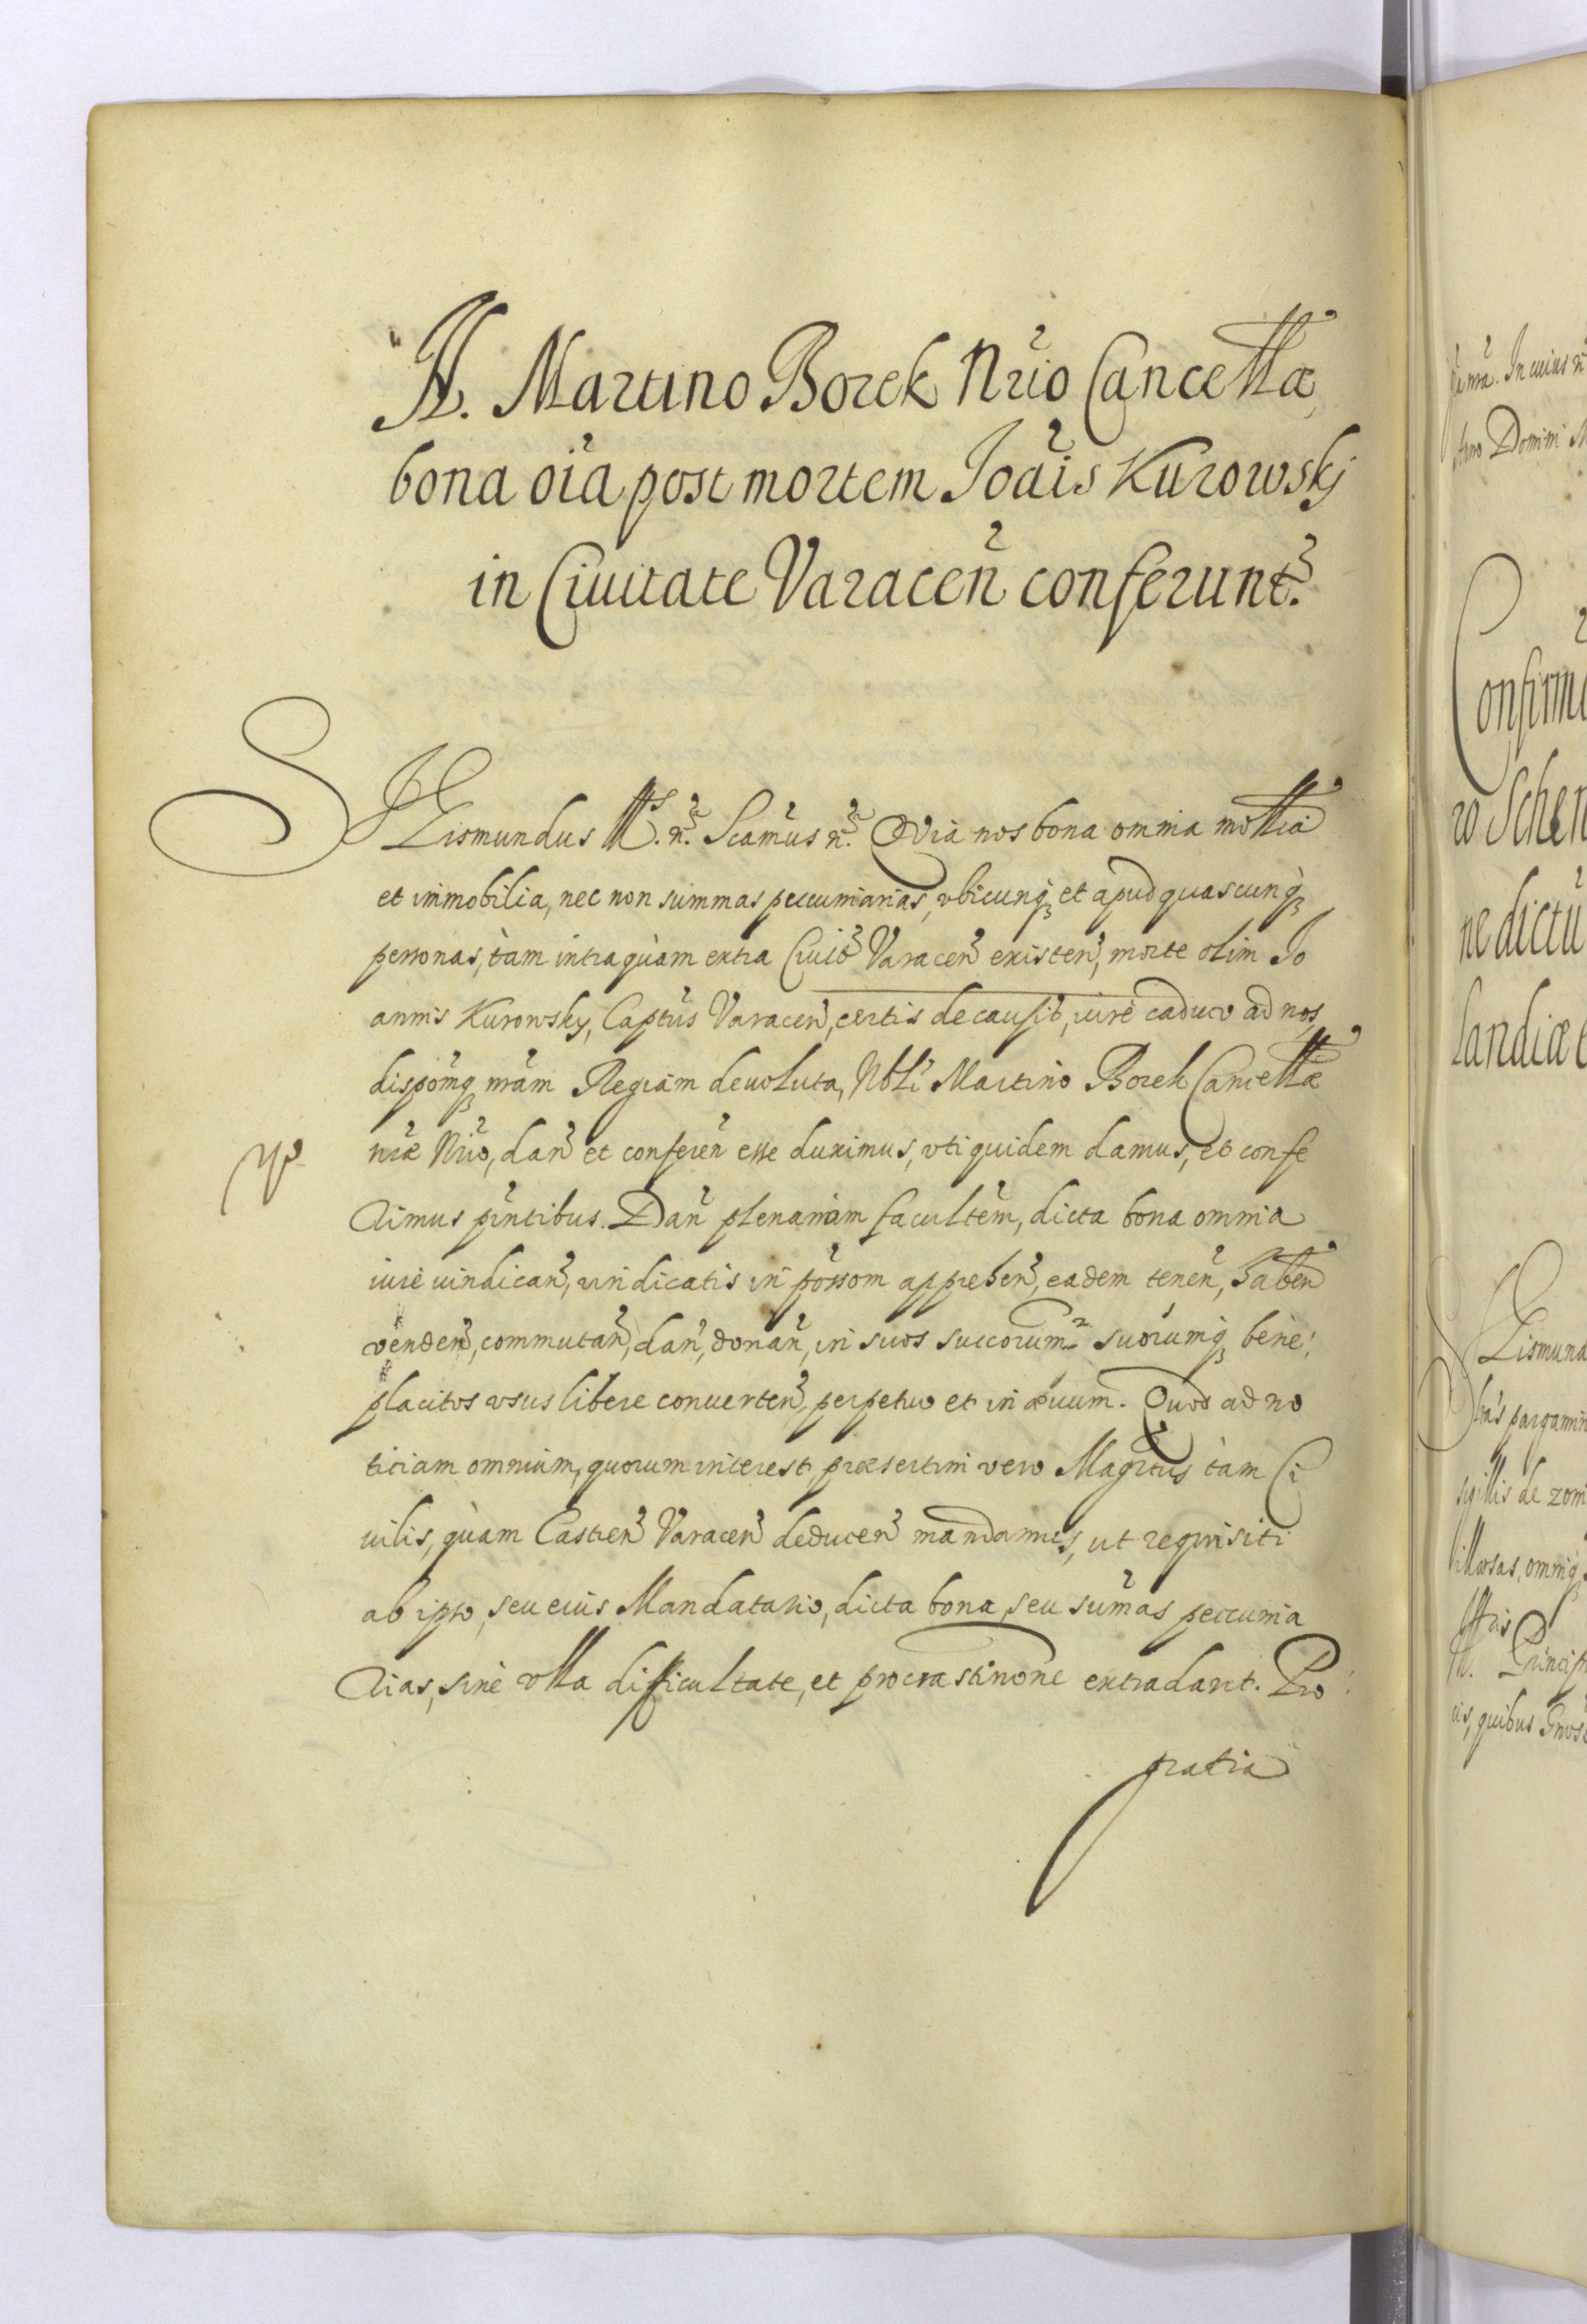 N. Martino Borek Nrio Cancellæ
bona oia post mortem Joais Kurowskj
in Ciuitate Varacen conferunt.
SJgismundus III. n. Scamus n. Qvia nos bona omnia mobilia
et immobilia, nec non summas peccuniarias, vbicunq et apud quascunq
personas, tàm intra quàm extra Ciuit Varacen existen, morte olim Jo
annis Kurowsky, Captus Varacen, certis de causis, iure caduco ad nos
dispomq nram Regiam deuoluta, Nbli Martino Borek Cancellæ
nræ Nrio, dan et conferen esse duximus, vti quidem damus, et confe
rimus pntibus. Dan plenariam facultem, dicta bona omnia
iure uindican, uindicatis in possom apprehen, eadem tenen, haben
venden, commutan, dan, donan, in suos succorum suorumq bene
placitos vsus libere conuerten, perpetuo et in æuum. Quod ad no
ticiam omnium, quorum interest, præsertim vero Magrtus tàm Ci
uilis, quàm Castren Varacen deducen mandamus, ut requisiti
ab ipso, seu eius Mandatario, dicta bona, seu sumas peccunia
rias, sine vlla difficultate, et procrastinone extradant. Pro
gratia